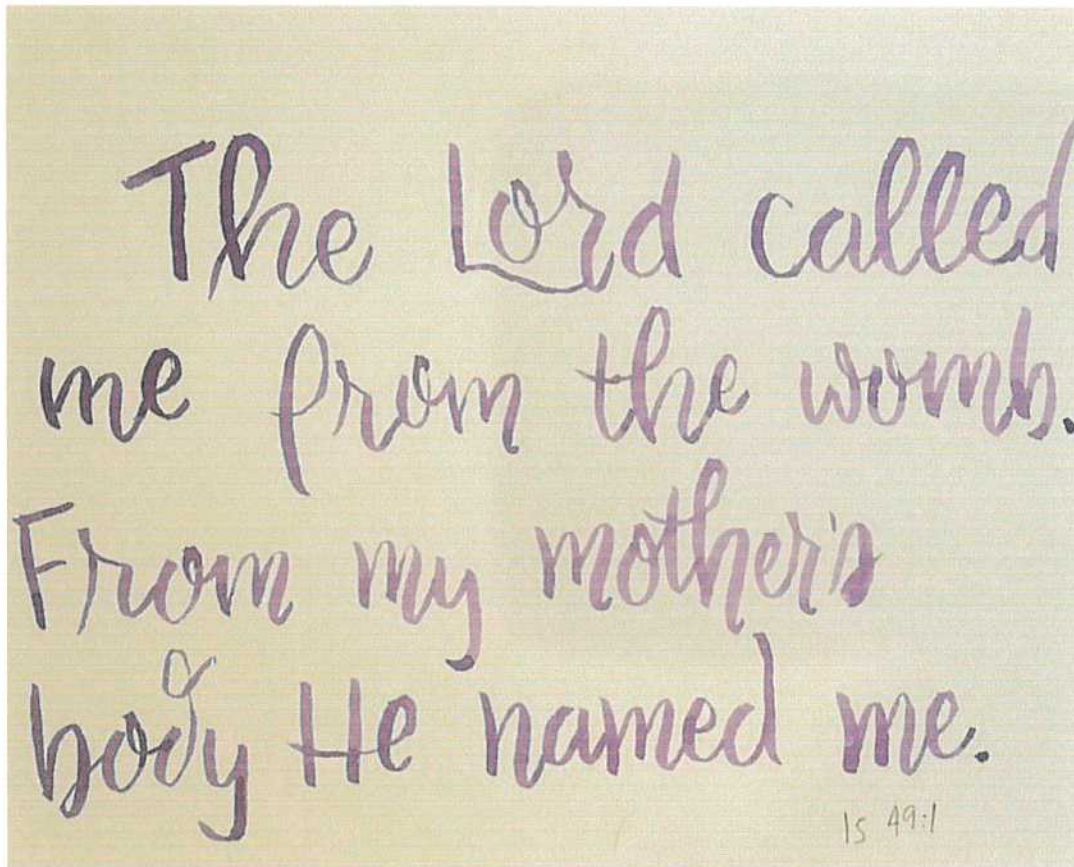 The Lord called
me from the womb.
From my mother's
body He named me.
Is 49:1